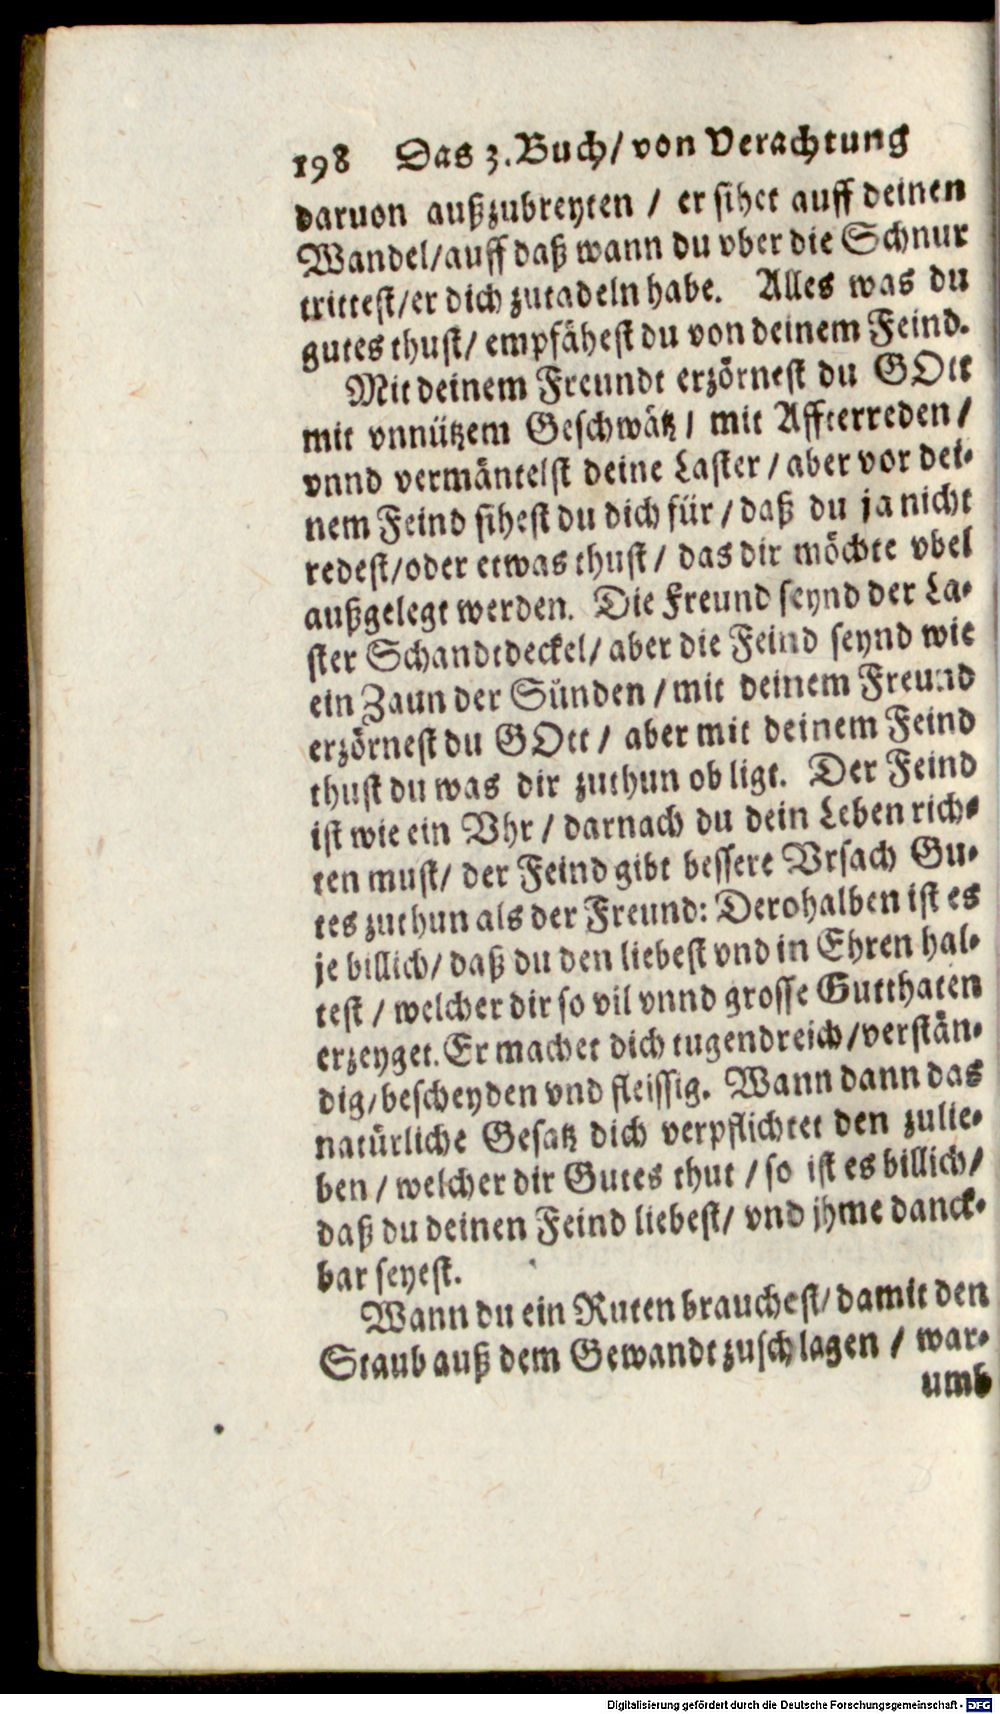 198 Das 3. Buch/ von Verachtung
daruon außzubreyten / er sihet auff deinen
Wandel/auff daß wann du vber die Schnur
trittest/er dich zutadeln habe. Alles was du
gutes thust/ empfähest du von deinem Feind.
Mit deinem Freundt erzörnest du GOtt
mit vnnützem Geschwätz / mit Affterreden /
vnnd vermäntelst deine Laster / aber vor dei-
nem Feind sihest du dich für / daß du ja nicht
redest/oder etwas thust / das dir möchte vbel
außgelegt werden. Die Freund seynd der La-
ster Schandtdeckel/ aber die Feind seynd wie
ein Zaun der Sünden / mit deinem Freund
erzörnest du GOtt / aber mit deinem Feind
thust du was dir zuthun ob ligt. Der Feind
ist wie ein Vhr / darnach du dein Leben rich-
ten must/ der Feind gibt bessere Vrsach Gu-
tes zuthun als der Freund: Derohalben ist es
je billich/ daß du den liebest vnd in Ehren hal-
test / welcher dir so vil vnnd grosse Gutthaten
erzeyget. Er machet dich tugendreich/verstän-
dig/bescheyden vnd fleissig. Wann dann das
natürliche Gesatz dich verpflichtet den zulie-
ben / welcher dir Gutes thut / so ist es billich/
daß du deinen Feind liebest/ vnd jhme danck-
bar seyest.
Wann du ein Ruten brauchest/ damit den
Staub auß dem Gewandt zuschlagen / war-
umb
Digitalisierung gefördert durch die Deutsche Forschungsgemeinschaft - DFG